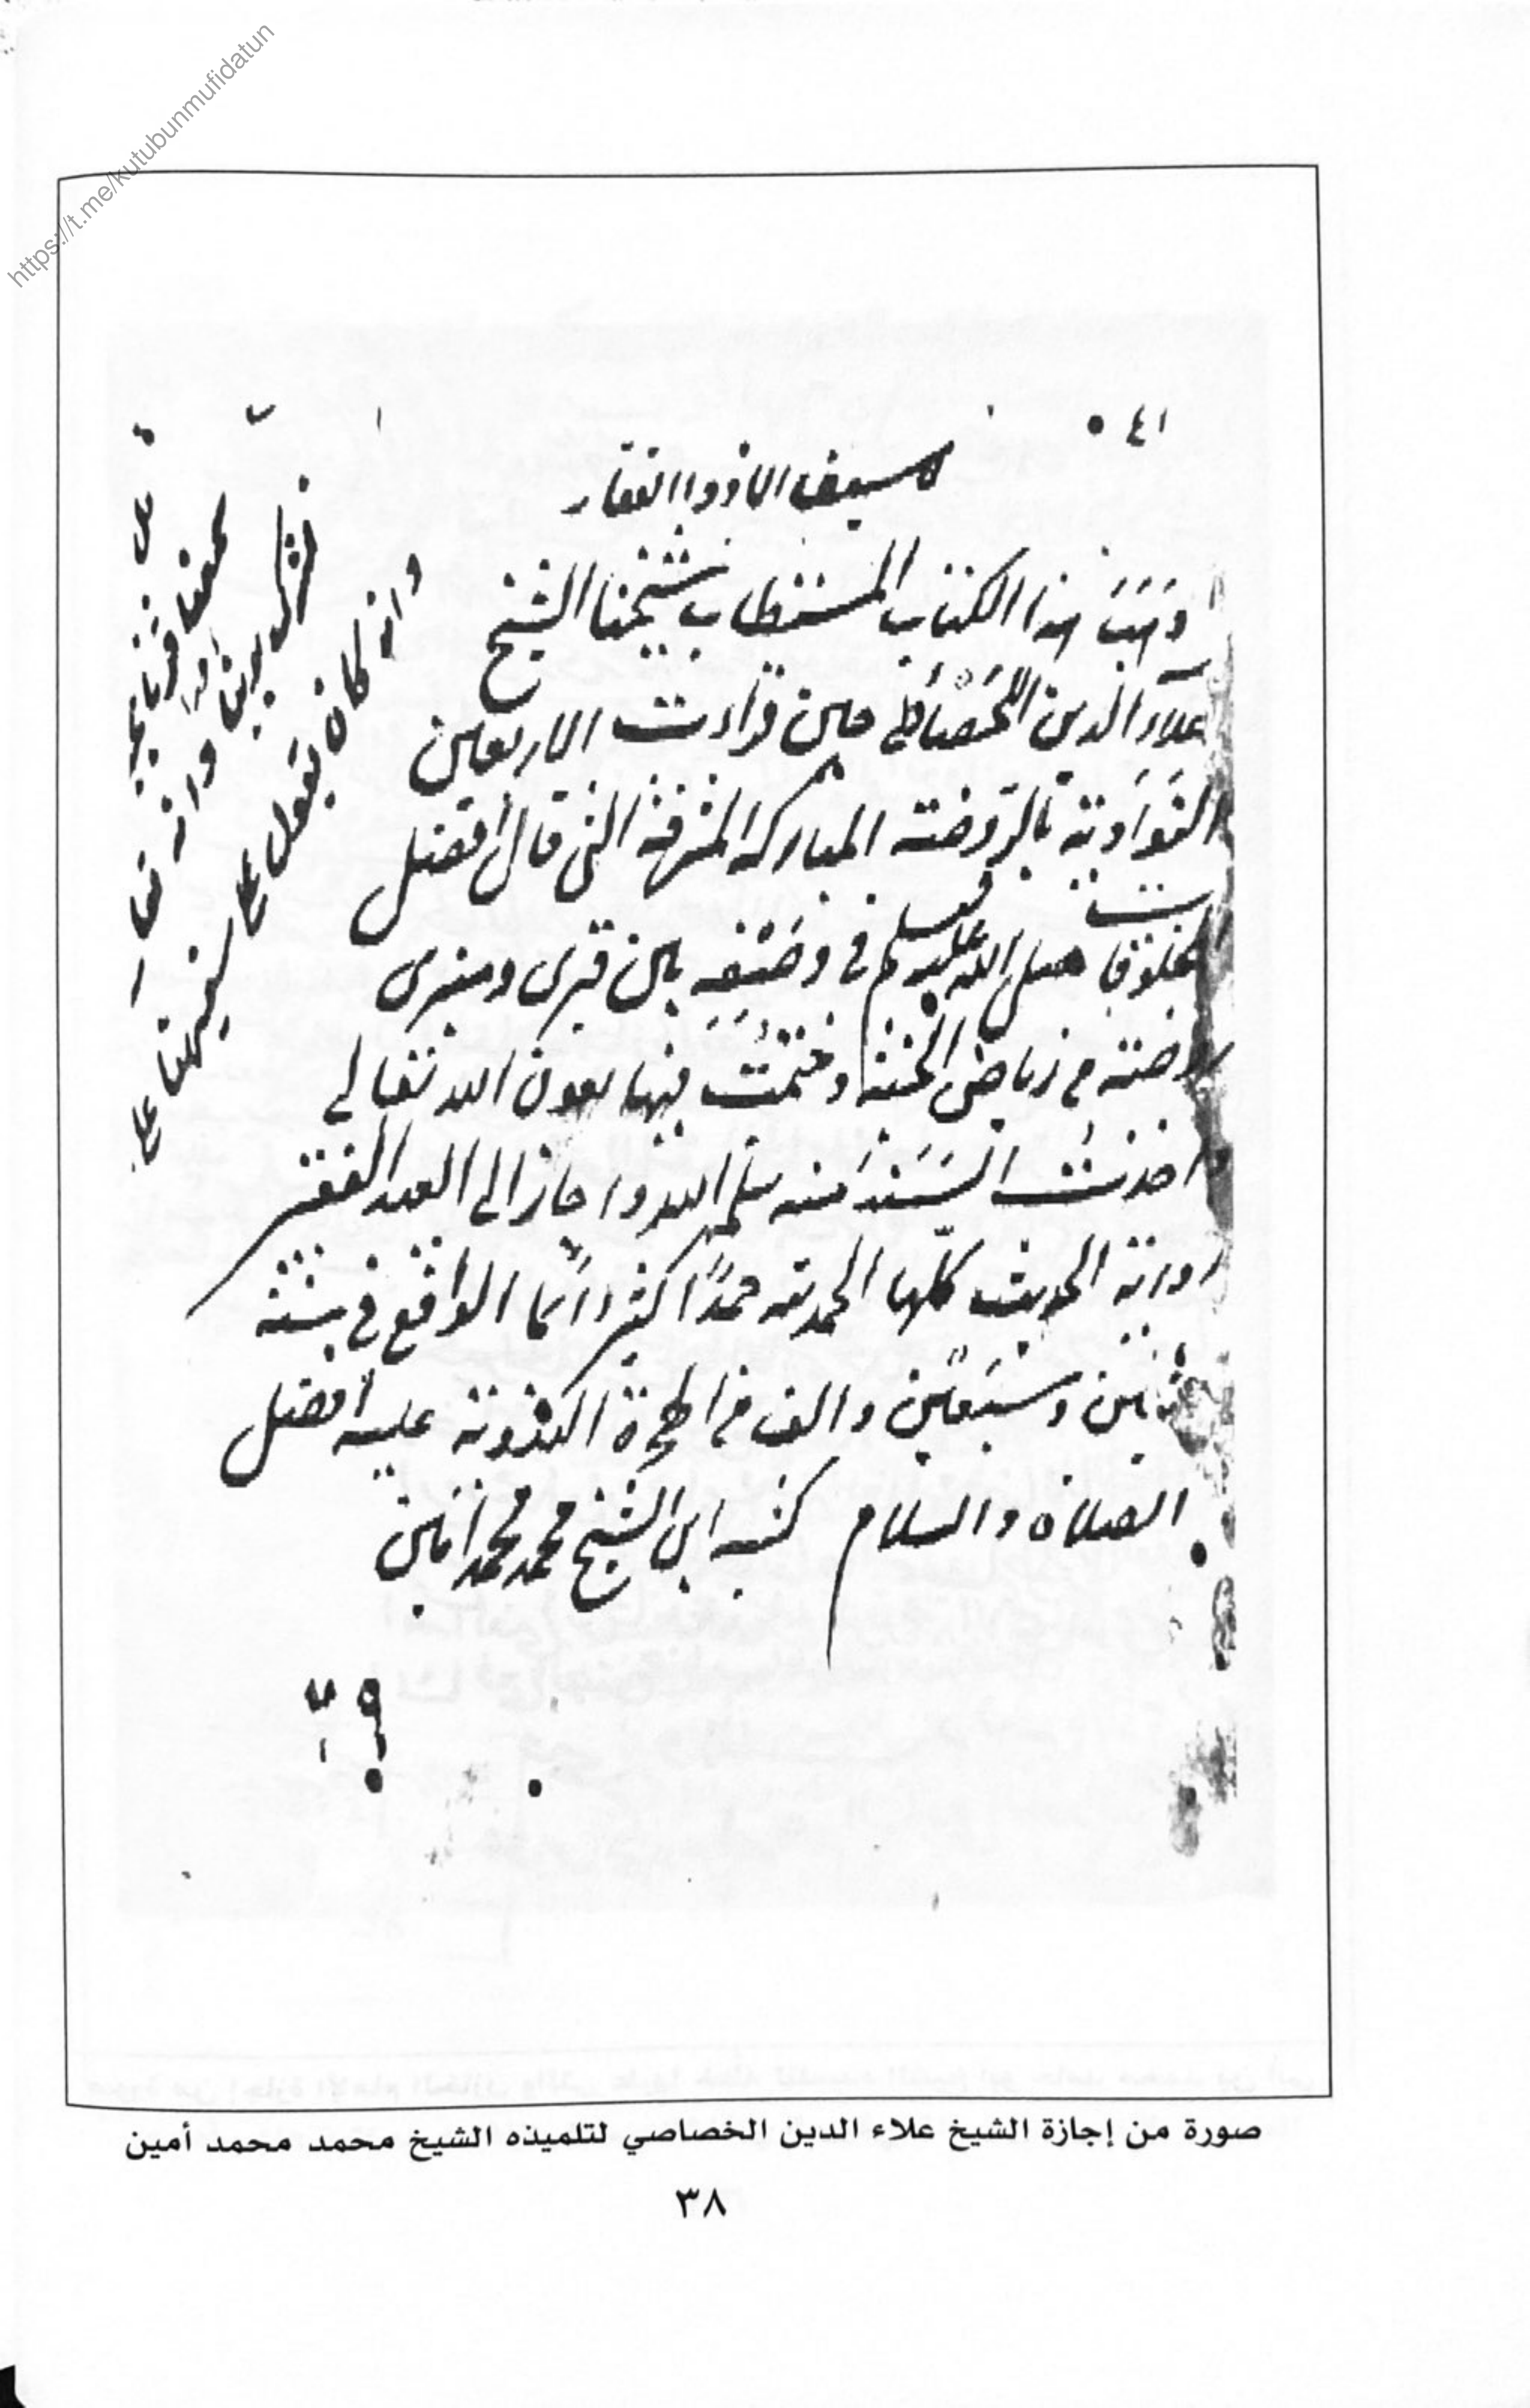 https://t.me/kutubunmufidatun
٤١
لا سيف الا ذو الفقار
وَهَبَ هذا الكتاب المستطاب شيخنا الشيخ
علاء الدين الخصاصي حين قراءت الاربعين
النواوية بالروضة المباركه المشرفة التي قال أفضل
المخلوقات صلى الله عليه وسلم في وصفه بين قبري ومنبري
روضة من رياض الجنة وختمت فيها بعون الله تعالى
اخذت السند منه سلمه الله واجاز الى العبد الفقير
رواية الحديث كلها الحمد لله حمدًا كثيرا دائما الواقع في سنة
وسبعين والف من الهجرة النبوية عليه أفضل
الصلاة والسلام كتبه ابن الشيخ محمد محمد امين
وان كان يقول على
صورة من إجازة الشيخ علاء الدين الخصاصي لتلميذه الشيخ محمد محمد أمين
٣٨